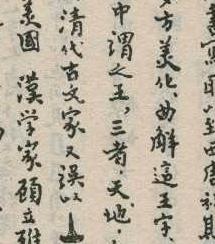 至西周初期
多方美化、曲解這王字、
中謂之王，三者，天地，
清代古文家又誤以
美國 漢学家顾立雅